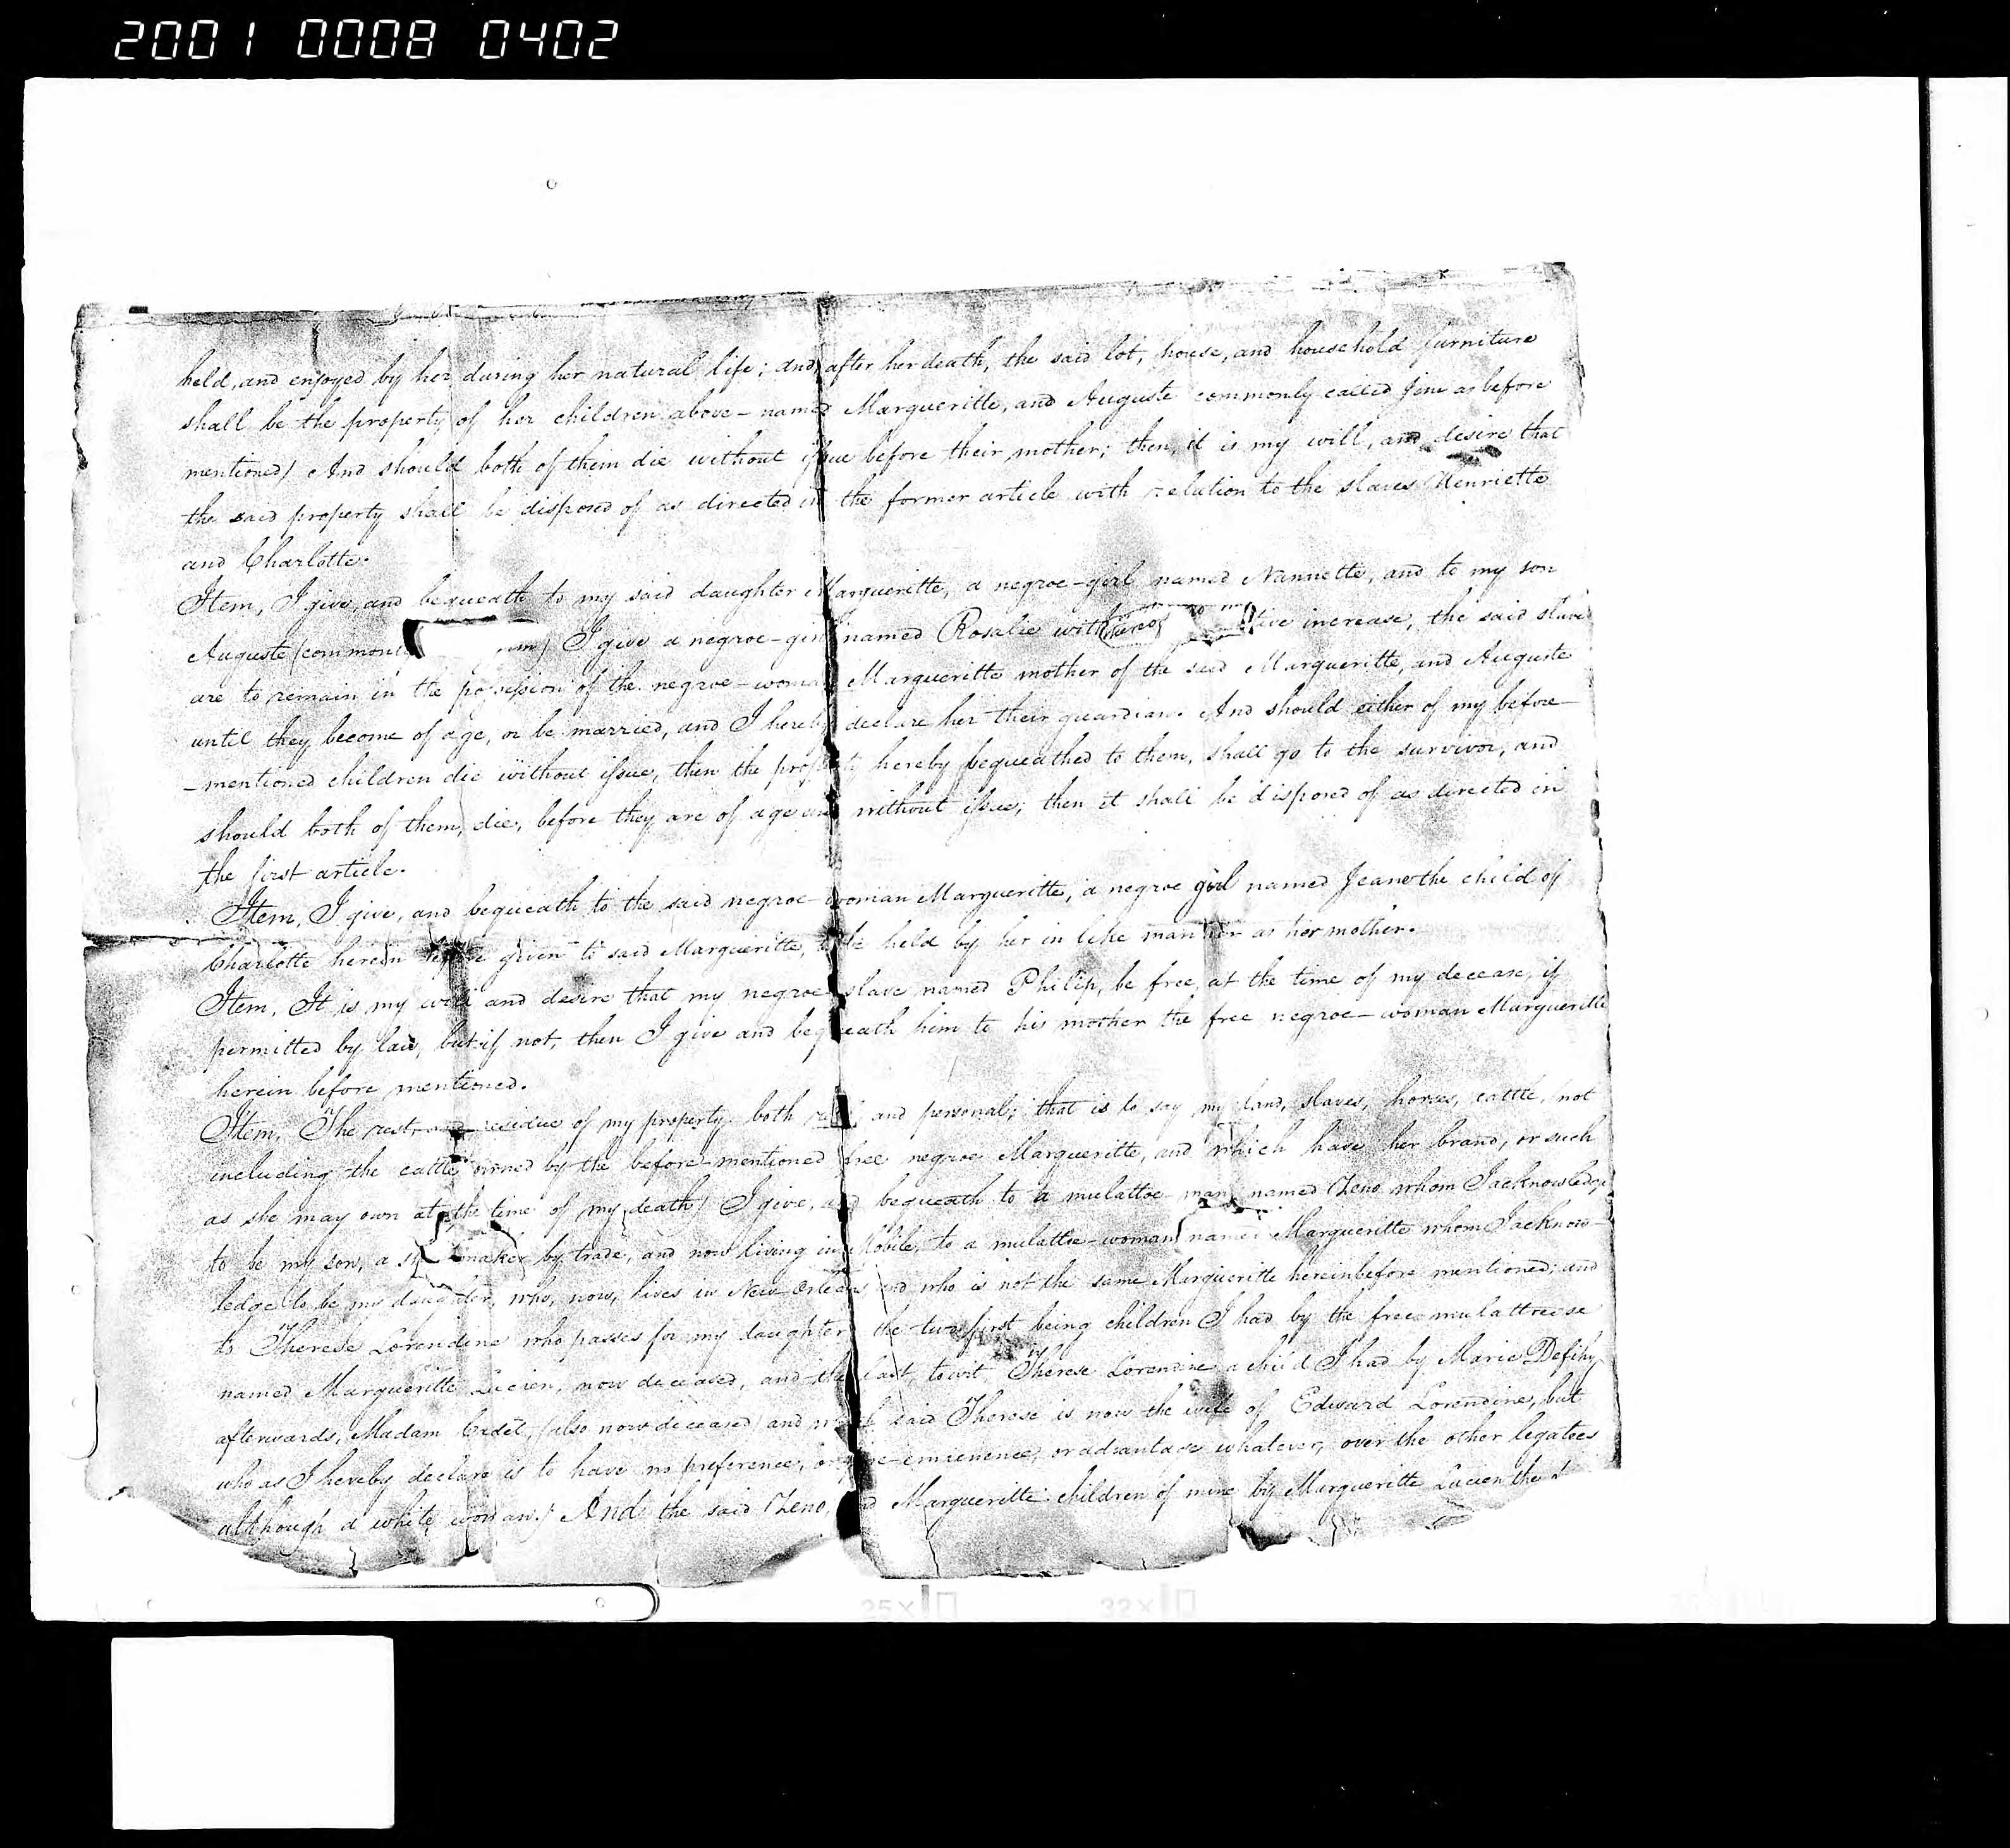 2001 0008 0402
held, and enjoyed by her during her natural life; and, after her death, the said lot, house, and household furniture
shall be the property of her children above-named Margueritte, and Auguste commonly called Jim as before
mentioned) And should both of them die without issue before their mother; then, it is my will, and desire that
the said property shall be disposed of as directed in the former article with relation to the slaves Henriette
and Charlotte.
Item, I give, and bequeath to my said daughter Margueritte, a negroe-girl named Nannette, and to my son
Auguste (commonly I give a negroe-girl named Rosalie with increase, the said slaves
are to remain in the possession of the negroe-woman Margueritte mother of the said Margueritte, and Auguste
until they become of age, or be married, and I hereby declare her their guardian. And should either of my before
-mentioned children die without issue, then the property hereby bequeathed to them, shall go to the survivor, and
should both of them, die, before they are of age and without issue; then it shall be disposed of as directed in
the first article.
Item, I give, and bequeath to the said negroe-woman Margueritte, a negroe girl named Jeane the child of
Charlotte herein before given to said Margueritte, to be held by her in like manner as her mother.
Item, It is my will and desire that my negroe-slave named Philip, be free, at the time of my decease, if
permitted by law, but if not, then I give and bequeath him to his mother the free negroe-woman Margueritte
herein before mentioned.
Item, The rest and residue of my property both real and personal; that is to say my land, slaves, horses, cattle, not
including the cattle owned by the before-mentioned free negroe Margueritte, and which have her brand, or such
as she may own at the time of my death) I give, and bequeath to a mulattoe man named Zeno whom I acknowledge
to be my son, a maker by trade, and now living in Mobile, to a mulattoe-woman named Margueritte whom I acknow-
ledge to be my daughter, who, now, lives in New Orleans and who is not the same Margueritte hereinbefore mentioned; and
to Therese Lorendine who passes for my daughter the two first being children I had by the free mulattresse
named Margueritte Lucien, now deceased, and the last, towit, Therese Lorendine a child I had by Marie Defihy
afterwards, Madam Cadet, (also now deceased) and which said Therese is now the wife of Edward Lorendine, but
who as I hereby declare is to have no preference, or pre-emienence, or advantage whatever, over the other legatees
although a white woman.) And the said Zeno, and Margueritte children of mine by Margueritte Lucien the